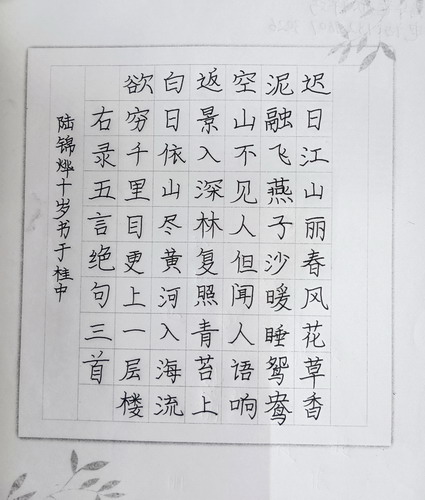 迟日江山丽春风花草香
泥融飞燕子沙暖睡鸳鸯
空山不见人但闻人语响
返景入深林复照青苔上
白日依山尽黄河入海流
欲穷千里目更上一层楼
右录五言绝句三首
陆锦烨十岁书于桂中